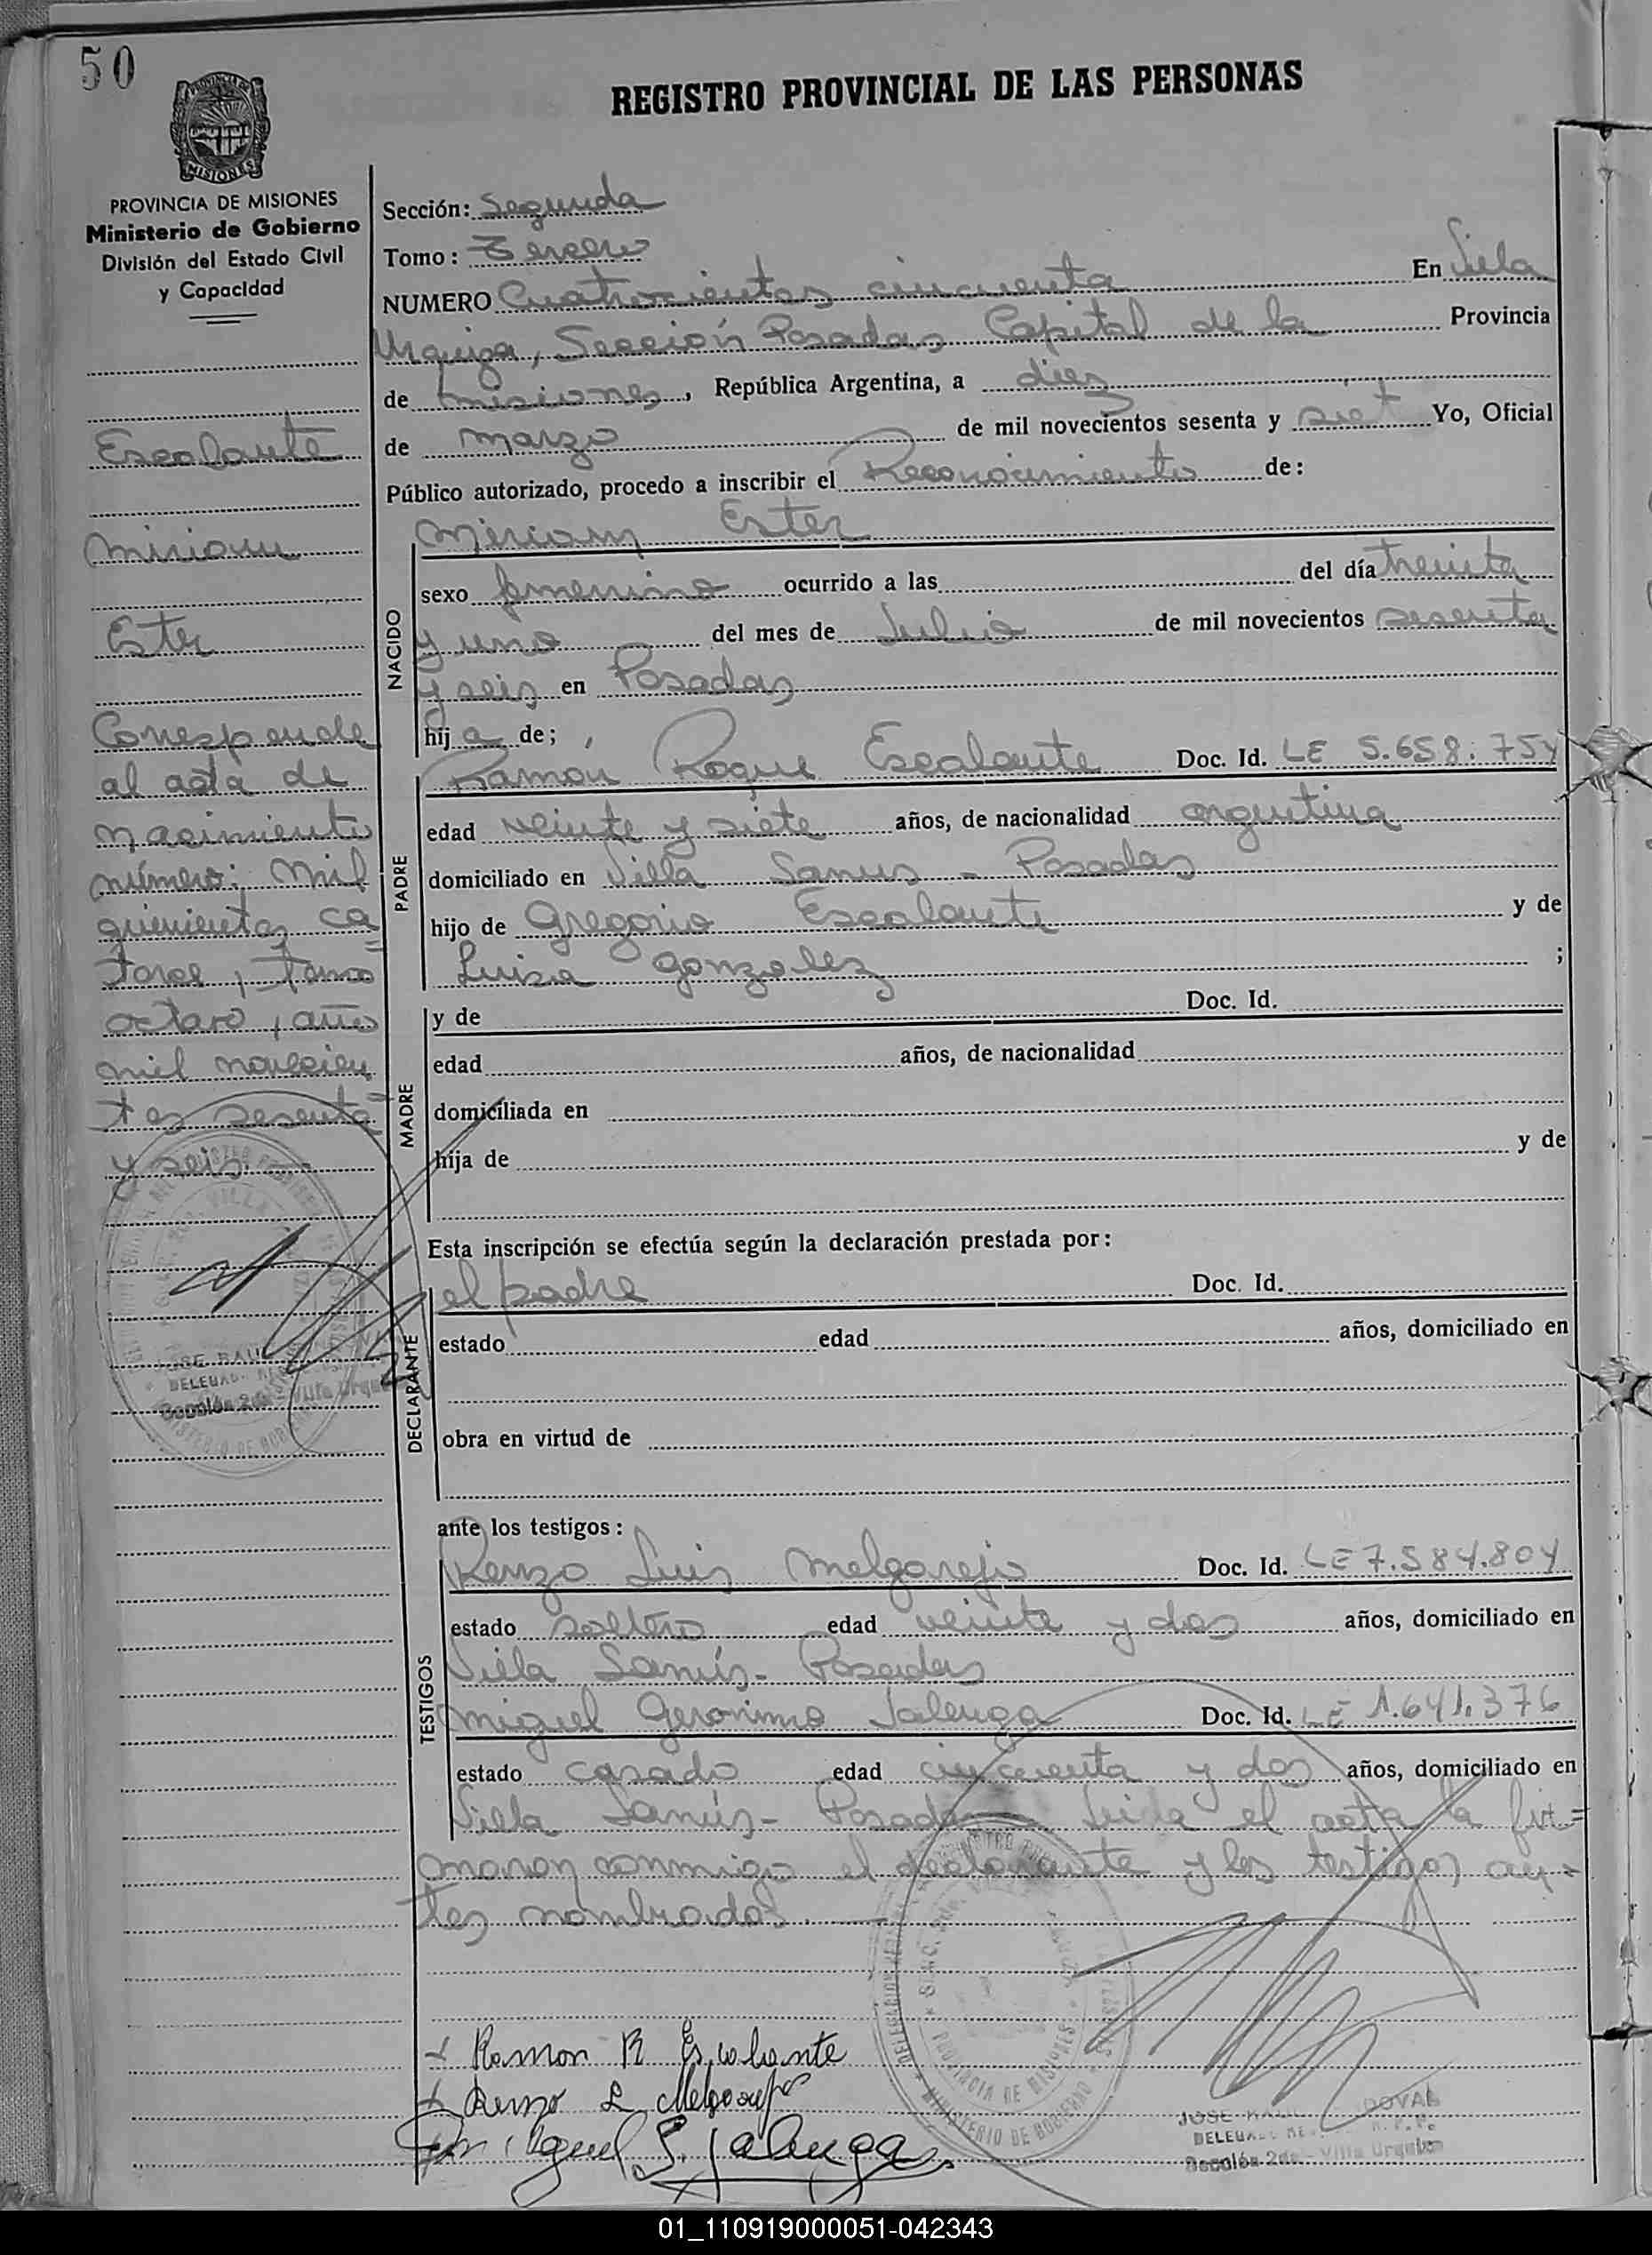 50
REGISTRO PROVINCIAL DE LAS PERSONAS
MISIONES
PROVINCIA DE MISIONES
Ministerio de Gobierno
División del Estado Civil
y Capacidad
Escalante
Miriam
Ester
Corresponde
al acta de
nacimiento
número: mil
quinientos ca
torce, tomo
octavo, año
mil novecien
tos sesenta
y seis.
Sección: Segunda
Tomo: Tercero
NUMERO Cuatrocientos cincuenta En Villa
Urquiza, Sección Posadas Capital de la Provincia
de Misiones, República Argentina, a diez
de marzo de mil novecientos sesenta y siet Yo, Oficial
Público autorizado, procedo a inscribir el Reconocimiento de:
NACIDO
Miriam Ester
sexo femenino ocurrido a las del día treinta
y uno del mes de Julio de mil novecientos sesenta
y seis en Posadas
hij a de;
PADRE
Ramon Roque Escalante Doc. Id. LE 5.658.754
edad veinte y siete años, de nacionalidad argentina
domiciliado en Villa Lanus - Posadas
hijo de Gregorio Escalante y de
Luisa Gonzalez ;
MADRE
y de Doc. Id.
edad años, de nacionalidad
domiciliada en
hija de y de
Esta inscripción se efectúa según la declaración prestada por:
DECLARANTE
el padre Doc. Id.
estado edad años, domiciliado en
obra en virtud de
ante los testigos:
TESTIGOS
Renzo Luis Melgarejo Doc. Id. LE 7.584.804
estado soltero edad veinte y dos años, domiciliado en
Villa Lanús - Posadas
Miguel Geronimo Jalenga Doc. Id. LE 1.641.376
estado casado edad cincuenta y dos años, domiciliado en
Villa Lanús - Posadas Leida el acta la fir=
maron conmigo el declarante y los testigos an=
tes nombrados.
Ramon R Escalante
Renzo L Melgarejo
Miguel G. Jalenga
PROVINCIA DE MISIONES
MINISTERIO DE GOBIERNO
JOSE RAUL DOVAL
Sección 2da - Villa Urquiza
01_110919000051-042343